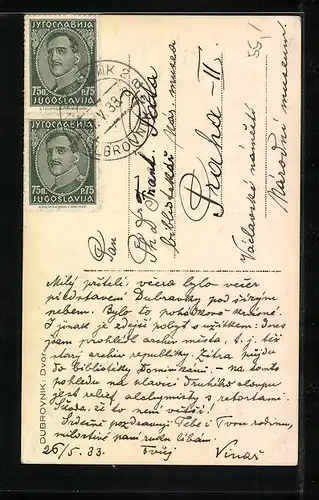 ЈУГОСЛАВИЈА
75п. P.75
JUGOSLAVIJA
ЈУГОСЛАВИЈА
75п. P.75
JUGOSLAVIJA
55/
Pan
Ph D Frant.
bibliotekář Nar. musea
Praha-II.
Václavské náměstí
Národní museum
Milý příteli, včera bylo večer
představení Dubravky pod širým
nebem. Bylo to pohádkově krásné.
I jinak je zdejší pobyt s užitkem: Dnes
jsem prohlédl archiv města, t. j. též
starý archiv republiky. Zítra půjdu
do bibliotéky Dominikánů. – na tomto
pohledu na hlavici druhého sloupu
jest relief alchymisty s retortami.
Škoda, že to není větší!
Srdečně pozdravuji Tebe i Tvou rodinu,
milostivé paní ruku líbám.
26/5. 33. Tvůj Vinař
DUBROVNIK: Dvor